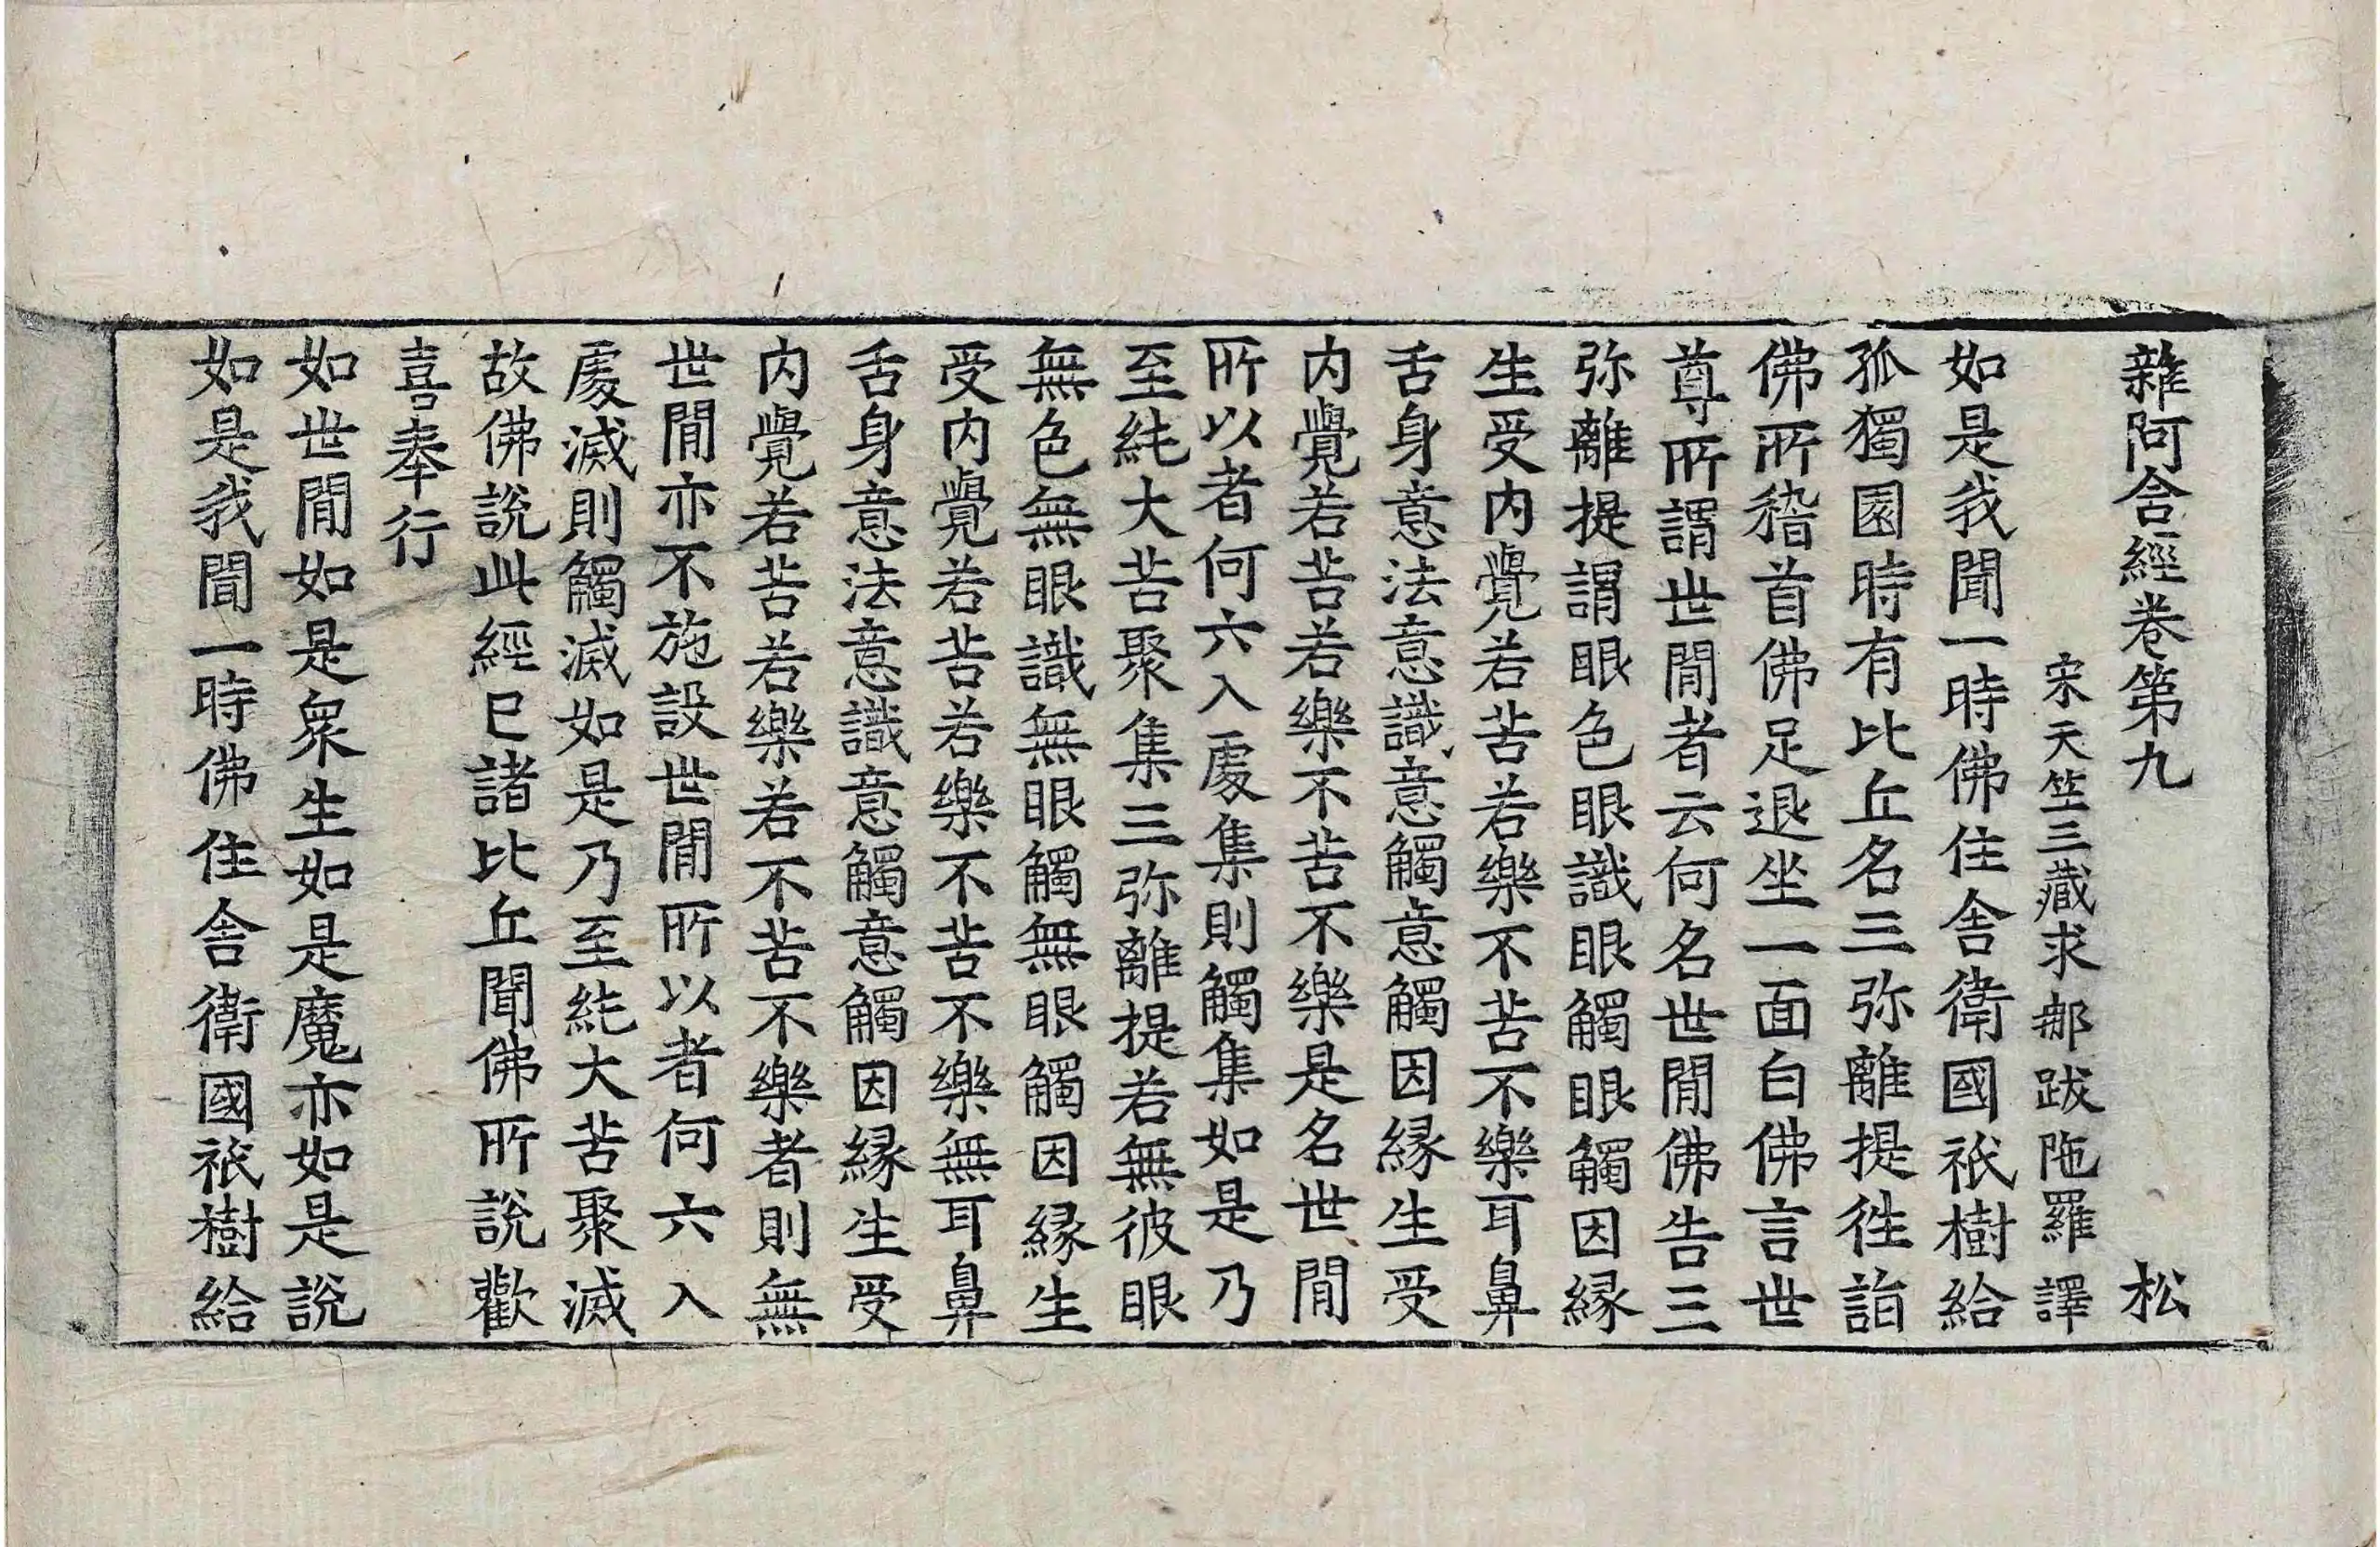 雜阿含經卷第九 松
宋天竺三藏求那跋陁羅譯
如是我聞一時佛住舍衛國祇樹給
孤獨園時有比丘名三弥離提往詣
佛所稽首佛足退坐一面白佛言世
尊所謂世閒者云何名世閒佛告三
弥離提謂眼色眼識眼觸眼觸因緣
生受內覺若苦若樂不苦不樂耳鼻
舌身意法意識意觸意觸因緣生受
內覺若苦若樂不苦不樂是名世閒
所以者何六入處集則觸集如是乃
至純大苦聚集三弥離提若無彼眼
無色無眼識無眼觸無眼觸因緣生
受內覺若苦若樂不苦不樂無耳鼻
舌身意法意識意觸意觸因緣生受
內覺若苦若樂若不苦不樂者則無
世閒亦不施設世閒所以者何六入
處滅則觸滅如是乃至純大苦聚滅
故佛說此經已諸比丘聞佛所說歡
喜奉行
如世閒如是衆生如是魔亦如是說
如是我聞一時佛住舍衛國祇樹給